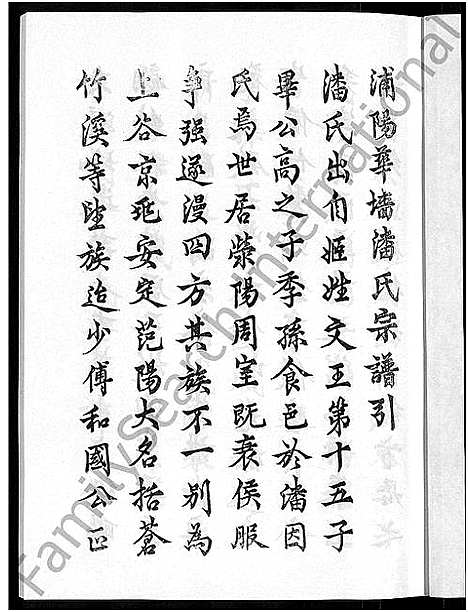 浦陽華墻潘氏宗譜引
潘氏出自姬姓文王第十五子
畢公高之子季孫食邑於潘因
氏焉世居滎陽周室既衰侯服
爭强遂漫四方其族不一别為
上谷京兆安定范陽大名括蒼
竹溪等望族迨少傅和國公正
FamilySearch International